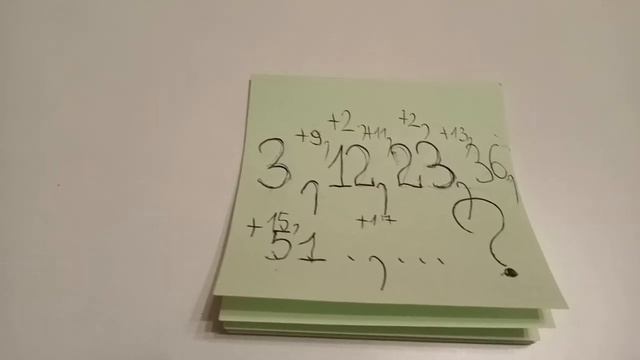 +2, +2,
+9, +11, +13,
3, 12, 23, 36,
+15, +17
51 .., ... ?